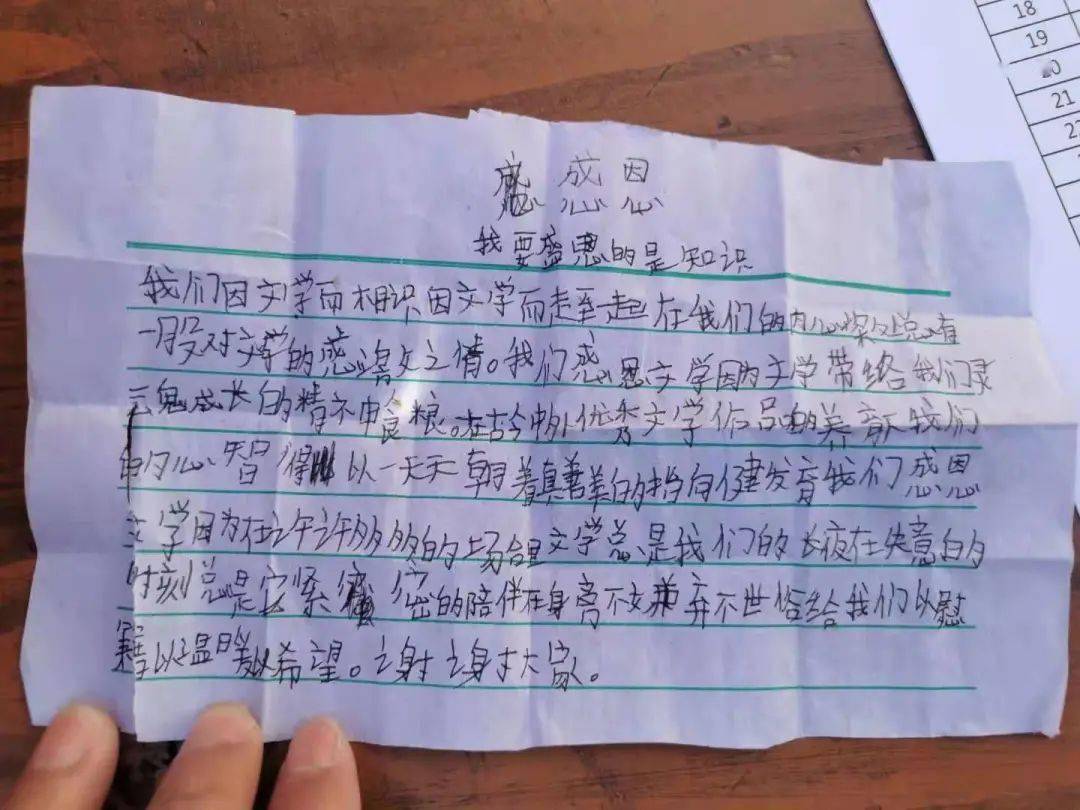 感恩
我要感恩的是知识
我们因文学而相识因文学而走到一起在我们的内心深处总有
一股对文学的感激之情。我们感恩文学因为文学带给我们灵
魂成长的精神食粮。在古今中外优秀文学作品的养育我们
的心智得以一天天朝着真善美的方向健发育我们感恩
文学因为在许许多多的场合里文学总是我们的长夜在失意的
时刻总是它紧密的陪伴在身离不弃不世俗给我们以慰
藉以温暖以希望。谢谢大家。
18
19
20
21
22